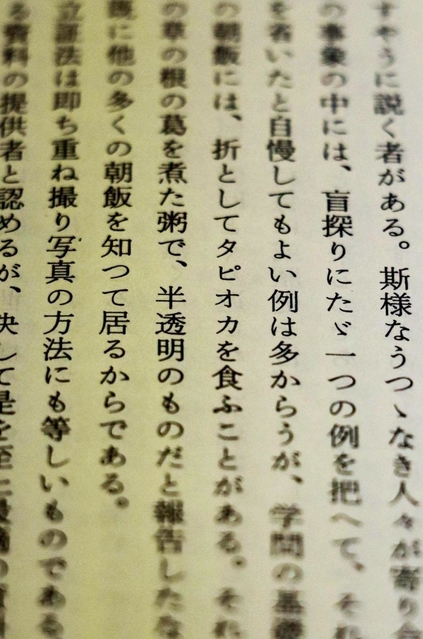 すやうに説く者がある。斯様なうつゝなき人々が寄り
の事象の中には、盲探りにたゞ一つの例を把へて、それ
を省いたと自慢してもよい例は多からうが、学問の基礎
の朝飯には、折としてタピオカを食ふことがある。それ
の草の根の葛を煮た粥で、半透明のものだと報告したな
既に他の多くの朝飯を知つて居るからである。
立証法は即ち重ね撮り写真の方法にも等しいものである
る資料の提供者と認めるが、決して是を至上最適の資料